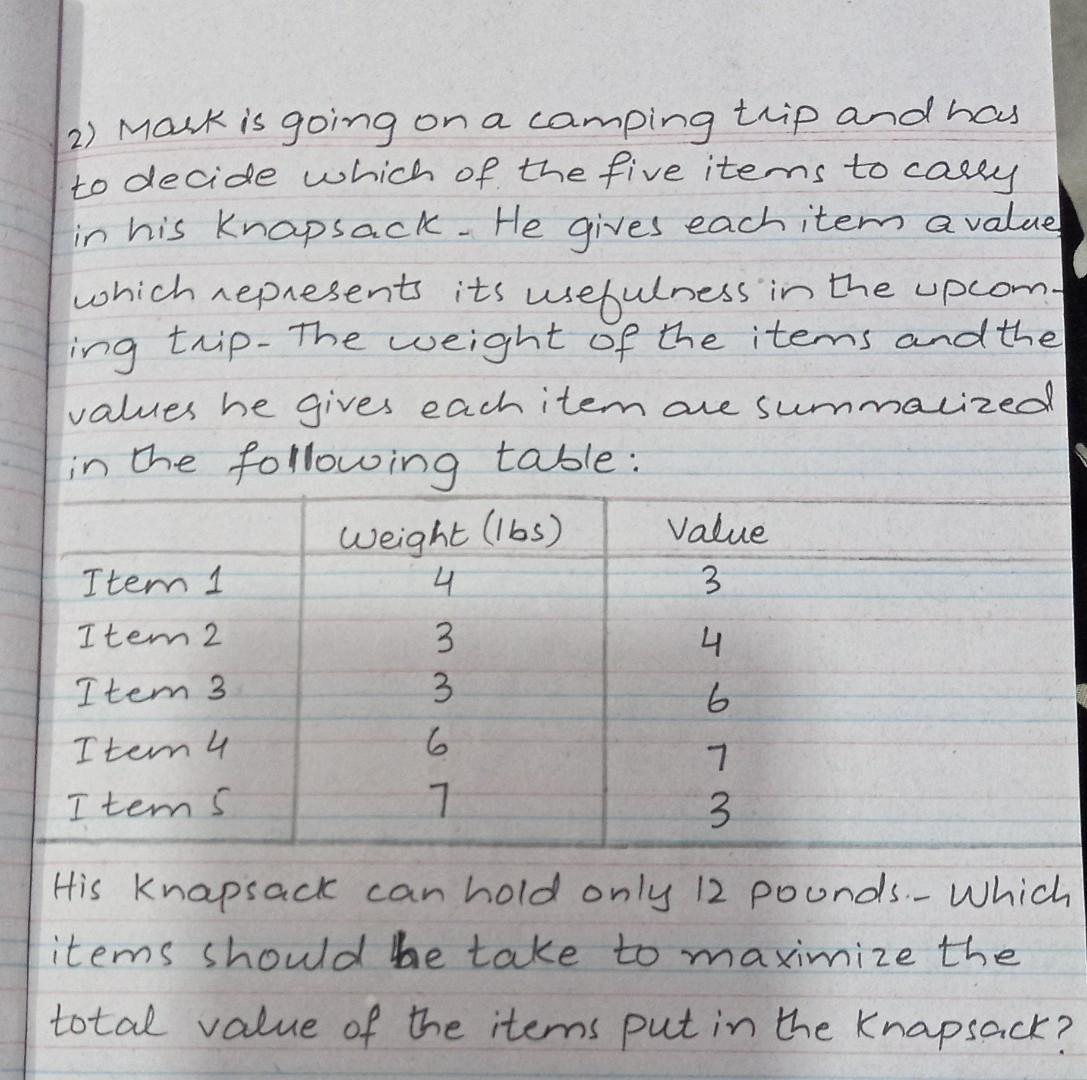 2) Mark is going on a camping trip and has
to decide which of the five items to carry
in his Knapsack. He gives each item a value
which represents its usefulness in the upcom-
ing trip. The weight of the items and the
values he gives each item are summarized
in the following table:
Weight (lbs) Value
Item 1 4 3
Item 2 3 4
Item 3 3 6
Item 4 6 7
Item 5 7 3
His Knapsack can hold only 12 pounds.- Which
items should he take to maximize the
total value of the items put in the Knapsack?